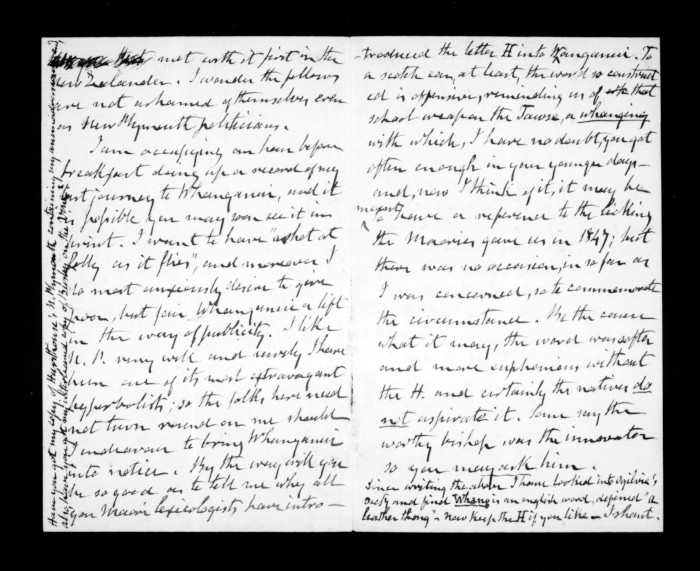 met with it first in the
New Zealander. I wonder the fellows
are not ashamed of themselves even
as New Plymouth politicians.
I am occupying an hour before
breakfast doing up a record of my
out journey to Whanganui, and it
is possible you may soon see it in
print. I want to have "a shot at
folly as it flies", and moreover I
do most anxiously desire to give
poor, but fair Whanganui a lift
in the way of publicity. I like
N. P. very well and surely I have
been one of its most extravagant
hyperbolists; so the folks here need
not turn round on me should
I endeavour to bring Whanganui
into notice. By the way will you
be so good as to tell me why all
you Maori lexicologists have intro-
Have you got my copy of Hursthouse's N. Plymouth containing my memoranda
also have you got my copy of on the
troduced the letter H into Wanganui. To
a scotch ear, at least, the word so construct
ed is offensive, reminding us of that
school weapon the Tawse, a whanging
with which, I have no doubt, you got
often enough in your younger days—
and, now I think of it, it may be
meant
to have a reference to the licking
the Maories gave us in 1847; but
there was no occasion, in so far as
I was concerned, so to commemorate
the circumstance. Be the cause
what it may, the word was softer
and more euphonious without
the H. and certainly the natives do
not aspirate it. Some say the
worthy bishop was the innovator
so you may ask him.
Since writing the above I have looked into Ogilvie's
Dicty and find Whang is an english word, defined "a
leather thong". Now keep the H if you like — I shant.